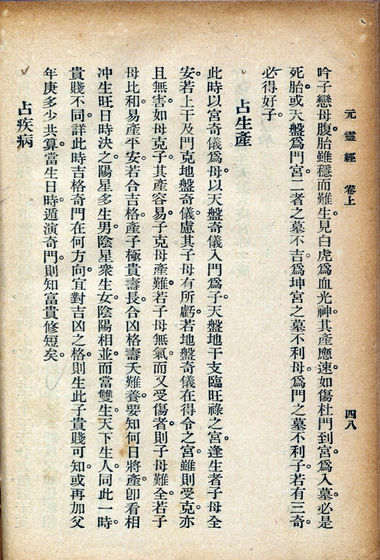 元靈經 卷上 四八
吟子戀母腹胎雖穩而難生見白虎爲血光神其產應速如傷杜門到宮爲入墓必是
死胎或天盤爲門宮二者之墓不吉爲坤宮之墓不利母爲門之墓不利子若有三奇
必得好子
占生產
此時以宮奇儀爲母以天盤奇儀入門爲子天盤地干支臨旺祿之宮逢生者子母全
安若上干及門克地盤奇儀慮其子母有所虧若地盤奇儀在得令之宮雖則受克亦
且無害如母克子其產容易子克母產難若子母無氣而又受傷者則子母難全若子
母比和易產平安若合吉格產子極貴壽長合凶格壽夭難養要知何日將產卽看相
冲生旺日時決之陽星多生男陰星衆生女陰陽相並而當雙生天下生人同此一時
貴賤不同詳此時吉格奇門在何方向宜對吉凶之格則生此子貴賤可知或再加父
年庚多少共算當生日時遁演奇門則知富貴修短矣
占疾病